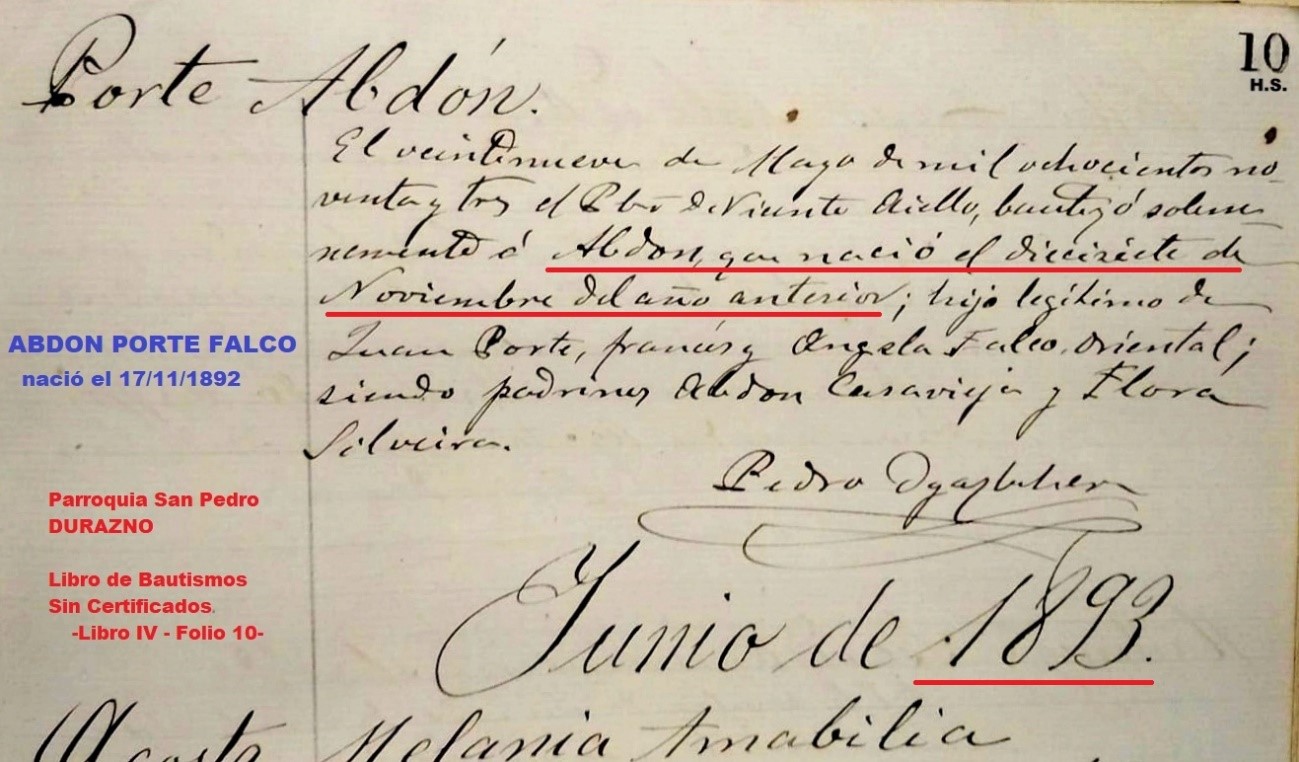 Porte Abdón.
10
H.S.
El veintinueve de Mayo de mil ochocientos no-
venta y tres el Pbro D. Vicente Aiello, bautizó solem-
nemente á Abdon, que nació el diecisiete de
Noviembre del año anterior; hijo legítimo de
Juan Porte, francés y Angela Falco, oriental;
siendo padrinos Abdon Casavieja y Flora
Silveira.
ABDON PORTE FALCO
nació el 17/11/1892
Pedro
Parroquia San Pedro
DURAZNO
Libro de Bautismos
Sin Certificados.
-Libro IV - Folio 10-
Junio de 1893.
Acosta Melania Amabilia